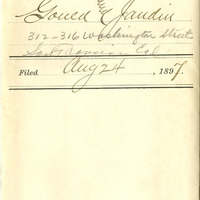 Gould and Jaudin
312-316 Washington Street
San Francisco Cal
Filed Aug 24, 1897.